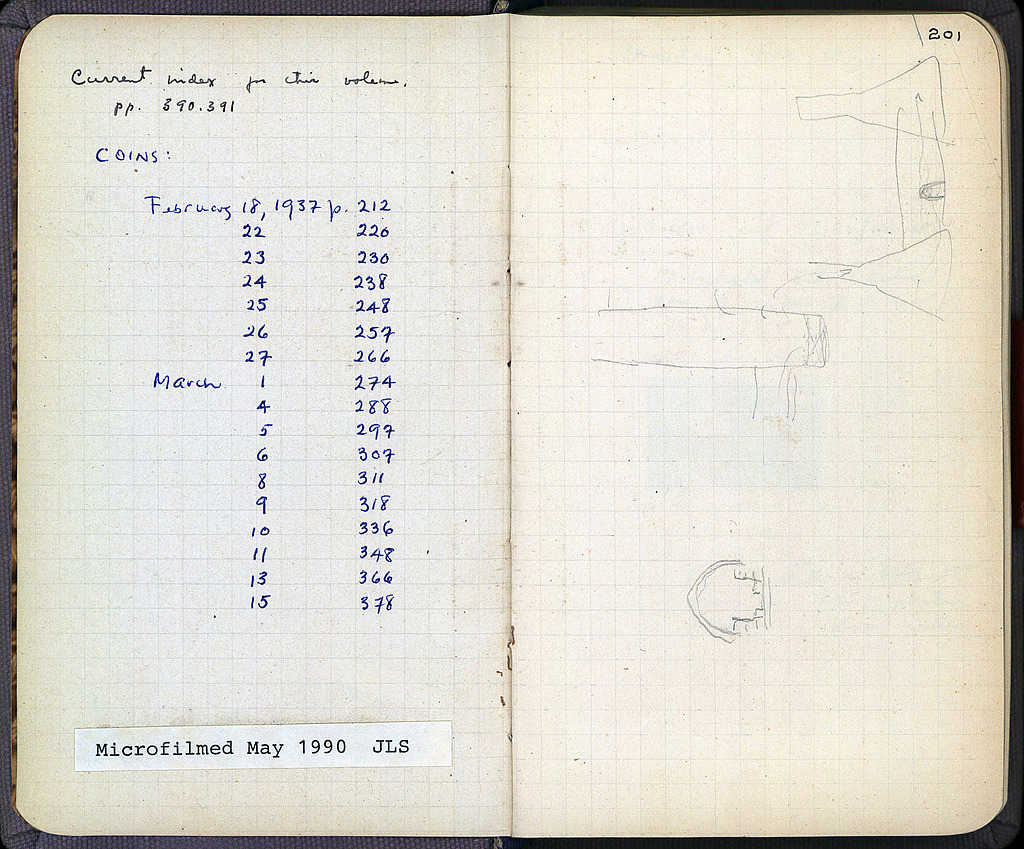 Current index for this volume.
pp. 390.391
COINS:
February 18, 1937 p. 212
22 220
23 230
24 238
25 248
26 257
27 266
March 1 274
4 288
5 297
6 307
8 311
9 318
10 336
11 348
13 366
15 378
Microfilmed May 1990 JLS
201